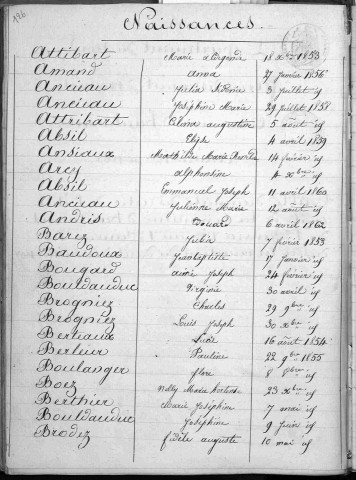 196
Naissances.
Attibart Marie 18 Xbre 1853
Amand anna 27 janvier 1856
Anciau Julia 3 juillet id
Anciau Joséphine Marie 29 juillet 1858
Attribart augustine 5 août id
Absil Elise 4 avril 1859
Ansiaux Marie 14 février id
Arcq alphonsine 4 Xbre id
Absil Emmanuel Joseph 11 avril 1860
Anciau Julienne Marie 12 août id
Andris Edouard 6 avril 1862
Barez Julie 7 février 1853
Baudoux Jeanbaptiste 17 janvier id
Bougard aimé Joseph 24 février id
Bouldauduc Virginie 30 avril id
Brogniez Charles 29 9bre id
Brogniez Louis Joseph 30 Xbre id
Bertiaux 16 août 1854
Berleur Pauline 22 9bre 1855
Boulanger flore 8 8bre id
Boez Nelly Marie hortense 23 Xbre id
Berthier Marie Joséphine 7 mai id
Bouldauduc Joséphine 9 juin id
Brodez fidèle auguste 10 mai id